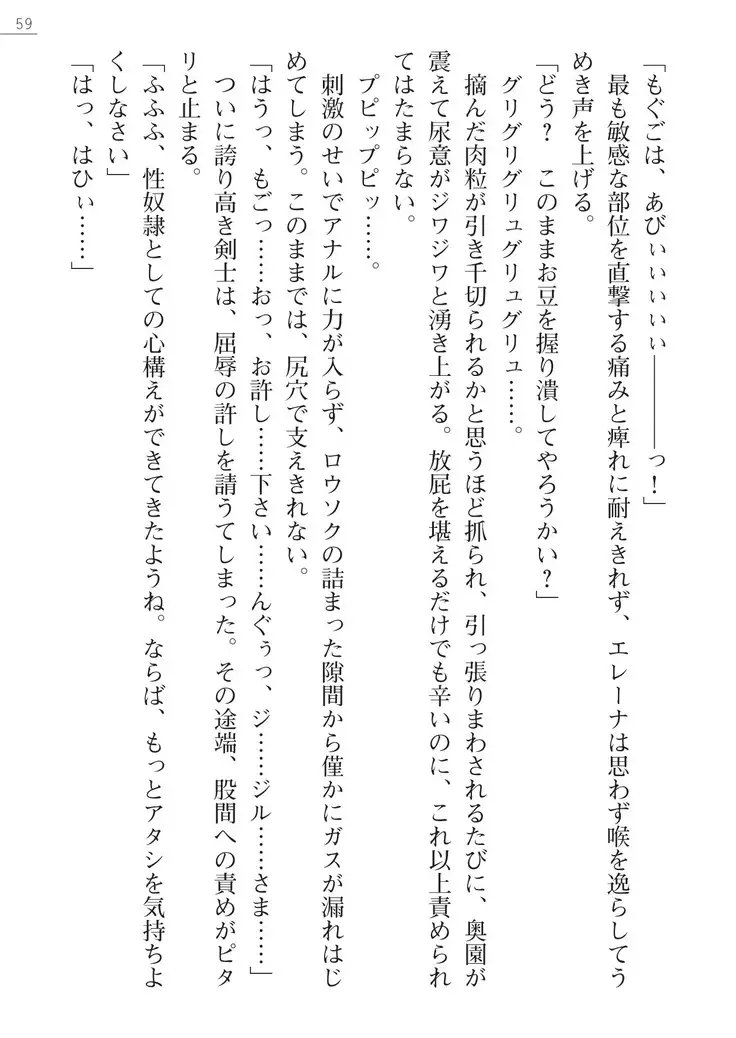 59
「もぐごは、あびぃぃぃぃぃ――――っ！」
　最も敏感な部位を直撃する痛みと痺れに耐えきれず、エレーナは思わず喉を逸らしてう
めき声を上げる。
「どう？　このままお豆を握り潰してやろうかい？」
　グリグリグリュグリュグリュ……。
　摘んだ肉粒が引き千切られるかと思うほど抓られ、引っ張りまわされるたびに、奥園が
震えて尿意がジワジワと湧き上がる。放屁を堪えるだけでも辛いのに、これ以上責められ
てはたまらない。
　プピップピッ……。
　刺激のせいでアナルに力が入らず、ロウソクの詰まった隙間から僅かにガスが漏れはじ
めてしまう。このままでは、尻穴で支えきれない。
「はうっ、もごっ……おっ、お許し……下さい……んぐぅっ、ジ……ジル……さま……」
　ついに誇り高き剣士は、屈辱の許しを請うてしまった。その途端、股間への責めがピタ
リと止まる。
「ふふふ、性奴隷としての心構えができてきたようね。ならば、もっとアタシを気持ちよ
くしなさい」
「はっ、はひぃ……」